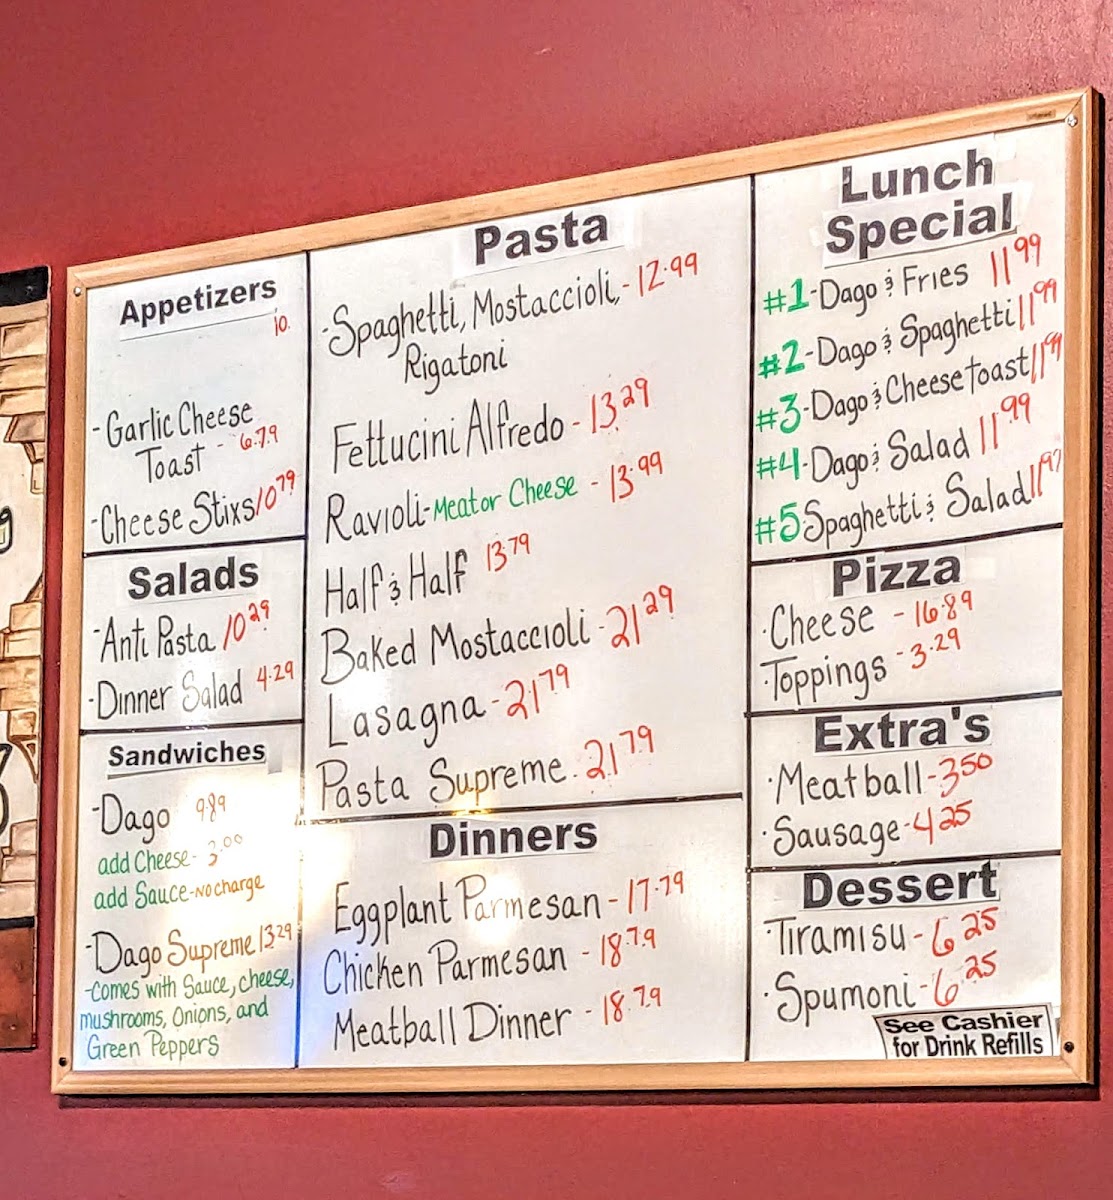 Appetizers
10.
- Garlic Cheese
Toast - 6.79
- Cheese Stixs 10 79
Salads
- Anti Pasta 10 29
- Dinner Salad 4.29
Sandwiches
- Dago 9.89
add Cheese - 3.00
add Sauce - no charge
- Dago Supreme 13 29
- comes with Sauce, cheese,
mushrooms, Onions, and
Green Peppers
Pasta
- Spaghetti, Mostaccioli, - 12.99
Rigatoni
Fettucini Alfredo - 13.29
Ravioli - Meat or Cheese - 13.99
Half & Half 13.79
Baked Mostaccioli - 21 29
Lasagna - 21 79
Pasta Supreme - 21 79
Dinners
Eggplant Parmesan - 17.79
Chicken Parmesan - 18.79
Meatball Dinner - 18.79
Lunch
Special
#1 - Dago & Fries 11 99
#2 - Dago & Spaghetti 11 99
#3 - Dago & Cheese toast 11 99
#4 - Dago & Salad 11.99
#5 Spaghetti & Salad 11 99
Pizza
· Cheese - 16.89
· Toppings - 3.29
Extra's
· Meatball - 3 50
· Sausage - 4 25
Dessert
· Tiramisu - 6 25
· Spumoni - 6.25
See Cashier
for Drink Refills